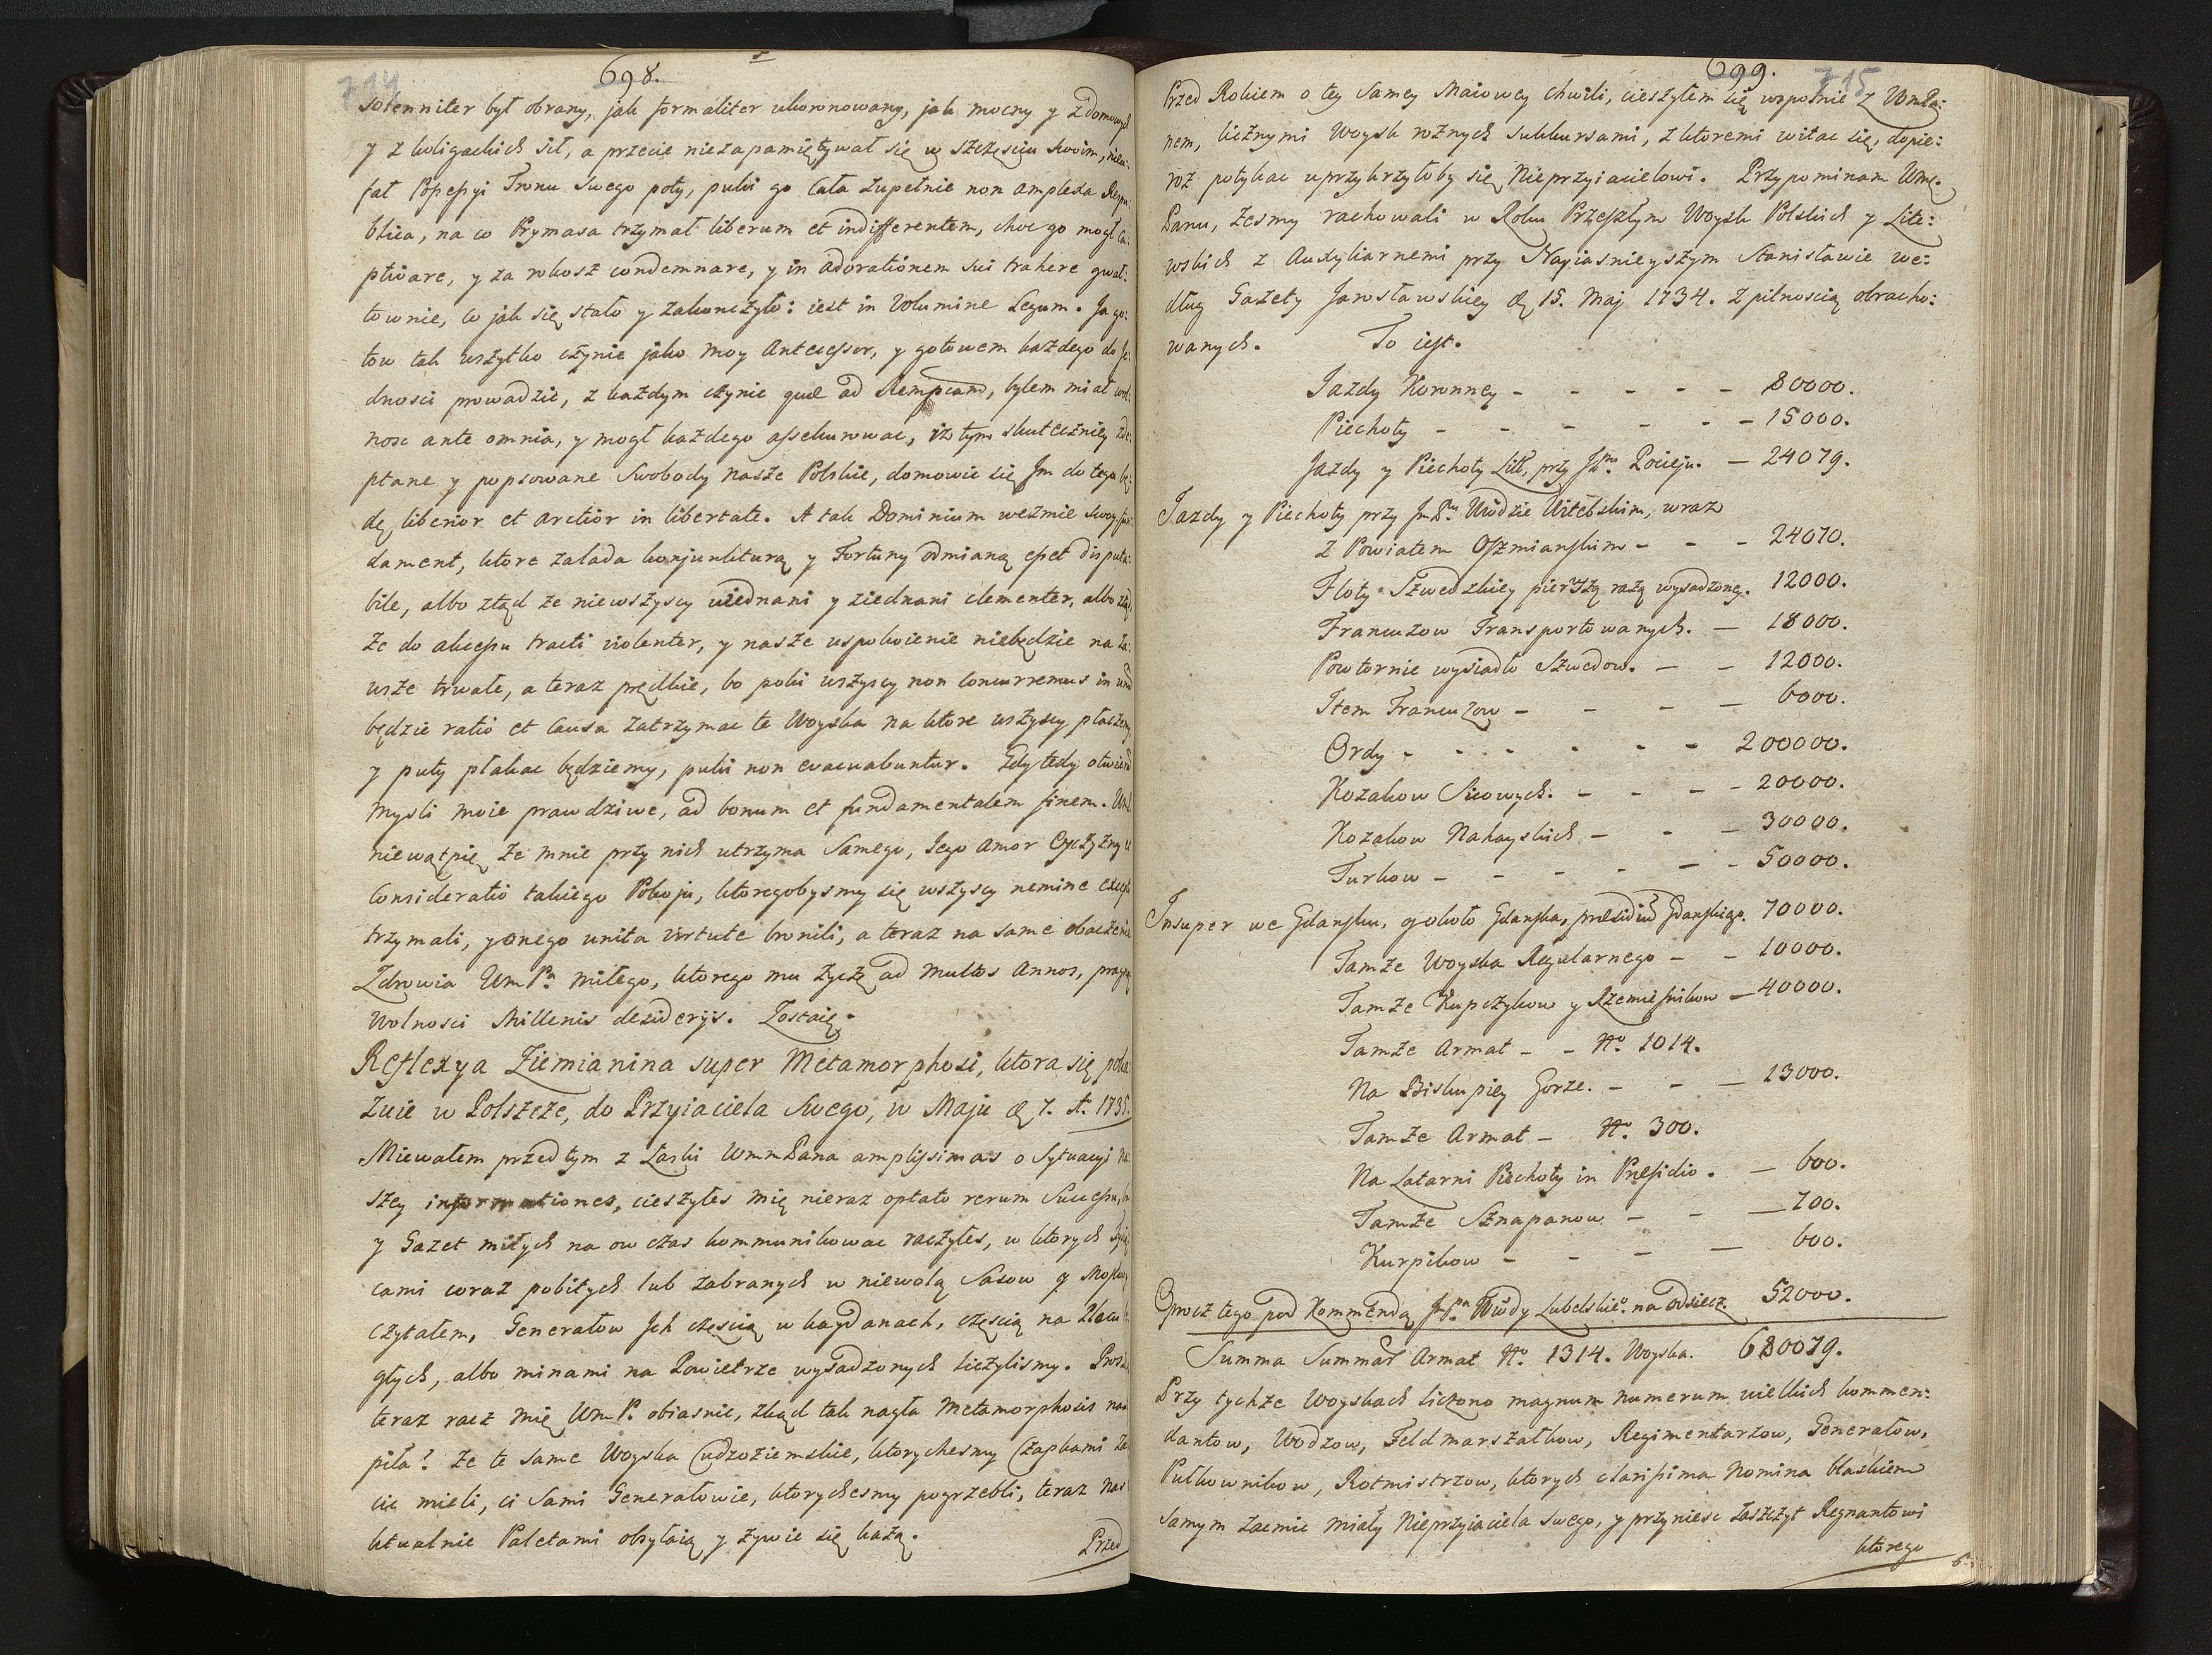 698.
714
solenniter był obrany, jak formaliter ukoronowany, jak mocny y z domowych
y z koligackich sił, a przecie niezapamiętywał się w szczęściu swoim,
Possessyi Tronu swego poty, puki go cała zupełnie non amplexa Respu:
blica, na co Prymasa trzymał liberum et indifferentem, choc go mogł ca:
ptivare, y za rokosz condemnare, y in adorationem sui trahere gwał:
townie, co jak się stało y zakonczyło: iest in Volumine Legum. Ja go:
tow tak wszytko czynic jako moy Antecessor, y gotowem kazdego do je:
dnosci prowadzic, z kazdym czynic quae ad Rempcam, bylem miał wol:
nosc ante omnia, y mogł kazdego assekurowac, iz tym skuteczniey zde:
ptane y popsowane Swobody nasze Polskie, domowic się Im do tego bę:
dę liberior et arctior in libertate. A tak Dominium wezmie swoy fun:
dament, ktore zalada konjunkturą y Fortuny odmianą esset disputa:
bile, albo ztąd ze niewszyscy uiednani y ziednani clementer, albo ztąd,
ze do akcessu tracti violenter, y nasze uspokoienie niebędzie na za:
wsze trwałe, a teraz prędkie, bo poki wszyscy non concurremus in unum
będzie ratio et causa zatrzymac te Woyska na ktore wszyscy płaczemy
y puty płakac będziemy, puki non evacuabuntur. Gdy tedy otwieram
mysli moie prawdziwe, ad bonum et fundamentalem finem. Wm
niewątpię ze mnie przy nich utrzyma samego, Iego amor Oyczyzny et
Consideratio takiego Pokoju, ktoregobysmy się wszyscy nemine excepto
trzymali, y onego unita virtute bronili, a teraz na same obaczenie
Zdrowia WmPa miłego, ktorego mu zyczę ad multos Annos, pragnę
Wolnosci Millenis desiderijs. Zostaię.
Reflexya Ziemianina super Metamorphosi, ktora się poka:
zuie w Polszcze, do Przyiaciela Swego, w Maju d. 7. Ao 1735.
Miewałem przedtym z Łaski WmmPana amplissimas o sytuacyi na:
szey informationes, cieszyłes mię nieraz optato rerum Successu,
y Gazet miłych na ow czas kommunikowac raczyłes, w ktorych tysią:
cami coraz pobitych lub zabranych w niewolą Sasow y Moskwy
czytałem, Generałow Ich częscią w kaydanach, częscią na placu le:
głych, albo minami na Powietrze wysadzonych liczylismy. Proszę
teraz racz mię WmP. obiasnic, zkąd tak nagła metamorphosis nastą
piła? Ze te same Woyska Cudzoziemskie, ktorychesmy Czapkami za
cic mieli, ci sami Generałowie, ktorychesmy pogrzebli, teraz nas
ktualnie Paletami obsyłaią y zywic się kazą.
Przed
699.
715
Przed Rokiem o tey samey Maiowey chwili, cieszyłem się wspolnie z WmPa:
nem, licznymi Woysk roznych sukkursami, z ktoremi witac się, dopie:
roz potykac uprzykrzyłoby się Nieprzyiacielowi. Przypominam Wme.
Panu, zesmy rachowali w Roku Przeszłym Woysk Polskich y Lite:
wskich z Auxyliarnemi przy Nayiasnieyszym Stanisławie we:
dług Gazety Jarosławskiey d. 15. Maj 1734. z pilnoscią obracho:
wanych. To iest.
Jazdy Koronney - - - - - 80000.
Piechoty - - - - - - 15000.
Jazdy y Piechoty Litt. przy JPnu Pocieju. - 24079.
Jazdy y Piechoty przy JmPnu Wwdzie Witebskim, wraz
z Powiatem Oszmianskim - - - 24070.
Floty Szwedzkiey pierszą razą wysadzoney. 12000.
Francuzow Transportowanych. - 18000.
Powtornie wysiadło Szwedow. - - 12000.
Item Francuzow - - - - 6000.
Ordy - - - - - - 200000.
Kozakow Siczowych. - - - - 20000.
Kozakow Nahayskich - - - 30000.
Turkow - - - - - - 50000.
Insuper we Gdansku, y około Gdanska, presidiu Gdanskiego. 70000.
Tamze Woyska Regularnego - - 10000.
Tamze Kupczykow y Rzemiesnikow - 40000.
Tamze Armat - - No. 1014.
Na Biskupiey Gorze. - - - 13000.
Tamze Armat - No. 300.
Na Latarni Piechoty in Presidio. - 600.
Tamze Sznapanow - - - 700.
Kurpikow - - - - 600.
Oprocz tego pod Kommendą JPna Wwdy Lubelskieo. na odsiecz. 52000.
Summa Summar Armat No. 1314. Woyska. 680079.
Przy tychze Woyskach liczono magnum numerum wielkich kommen:
dantow, Wodzow, Feldmarszałkow, Regimentarzow, Generałow,
Pułkownikow, Rotmistrzow, ktorych clarissima Nomina blaskiem
samym zacmic miały Nieprzyiaciela swego, y przyniesc zaszczyt Regnantowi
ktorego